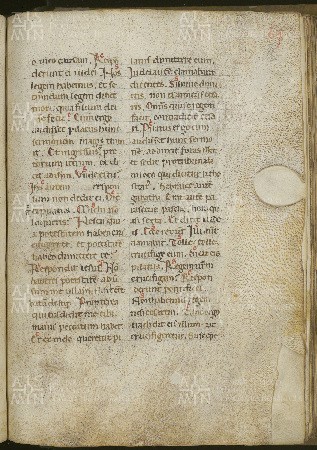 o in eo causam. Respon
derunt ei iudei Nos
legem habemus, et se
cundum legem debet
mori, quia filium dei
se fecit. Cum ergo
audisset pilatus hunc
sermonem, magis timu
it. Et ingressus pre
torium iterum, et di
cit ad Unde es tu?
autem respon
sum non dedit ei. Di
cit ei pilatus. non
loqueris? Nescis qui
a potestatem habeo
et potestatem
habeo dimittere te?
Respondit iesus. No
haberes potestatem
me ullam nisi
datum Propterea
qui tradidit me tibi
maius peccatum habet.
Et exinde querebat pi
latus dimittere eum.
Iudei clamabant
dicentes. Si hunc dimi
ttis, non es amicus cesa
ris. Omnis qui se regem
facit, contradicit cesa
ri. Pilatus ergo cum
audisset hos sermo
nes, adduxit foras
et sedit pro tribunali
in loco qui dicitur litho
hebraice
gabatha. Erat pa
rasceue pasche, hora qua
si sexta. Et dicit iude
is. Ecce rex Illi
clamabant. Tolle
crucifige eum. Dicit eis
pilatus. Regem
crucifigam? Respon
derunt pontifices.
Non habemus regem
nisi cesarem. Tunc ergo
tradidit eis illum ut
crucifigeretur. Suscepe